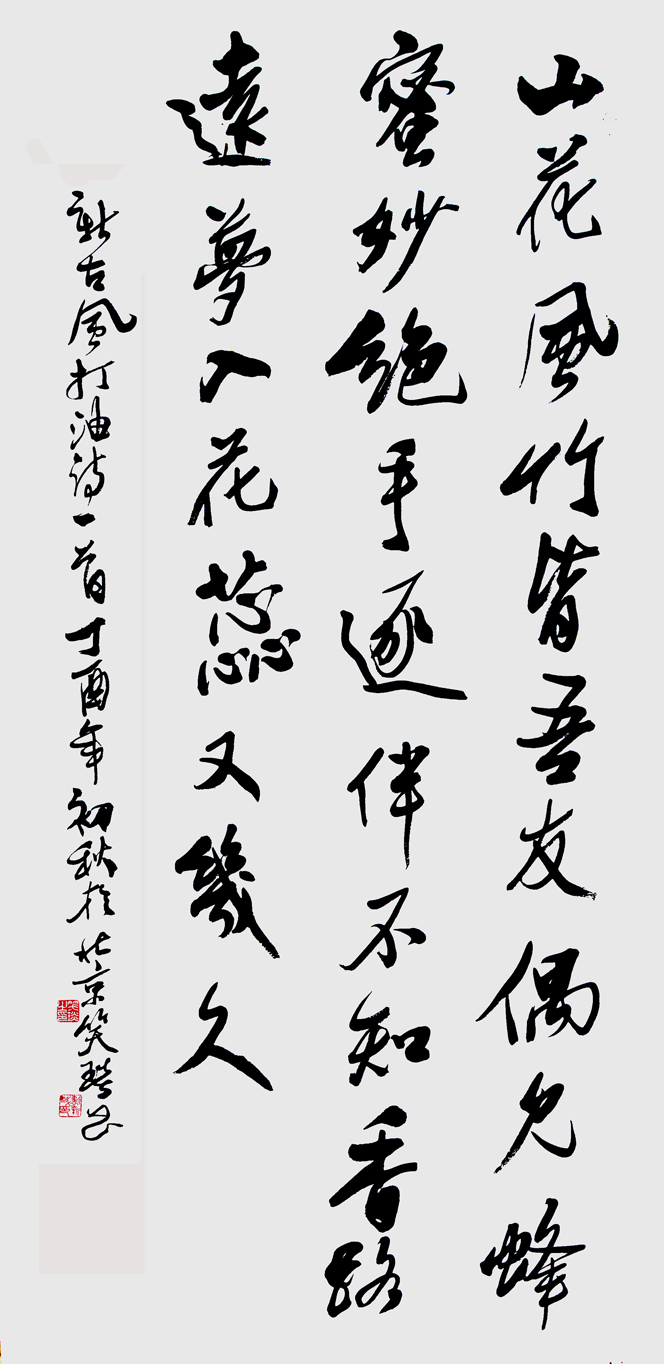 山花風竹皆吾友偶允蜂
蜜妙絶手逐伴不知香路
遠夢入花蕊又幾久
新古風打油詩一首丁酉年初秋於北京笑書